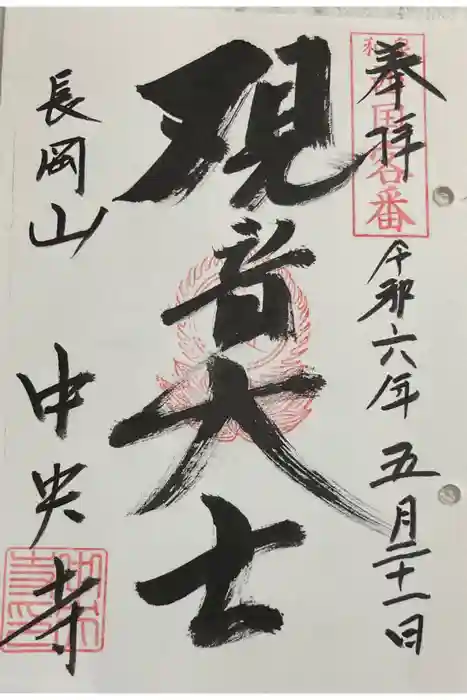 奉拝
西国客番
令和六年五月二十一日
観音大士
長岡山
中央寺